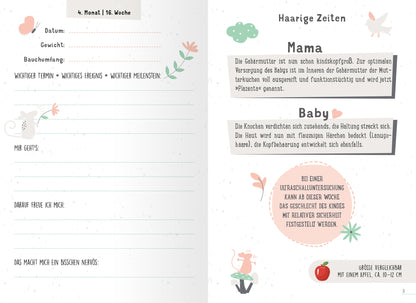 4. Monat | 16. Woche
Datum:
Gewicht:
Bauchumfang:
WICHTIGER TERMIN • WICHTIGES EREIGNIS • WICHTIGER MEILENSTEIN:
MIR GEHT'S:
DARAUF FREUE ICH MICH:
DAS MACHT MICH EIN BISSCHEN NERVÖS:
Haarige Zeiten
Mama
Die Gebärmutter ist nun schon kindskopfgroß. Zur optimalen
Versorgung des Babys ist im Inneren der Gebärmutter der Mut-
terkuchen voll ausgereift und funktionstüchtig und wird jetzt
»Plazenta« genannt.
Baby
Die Knochen verdichten sich zusehends, die Haltung streckt sich.
Die Haut wird nun mit flaumigen Härchen bedeckt (Lanugo-
haare), die Kopfbehaarung entwickelt sich ebenfalls.
BEI EINER
ULTRASCHALLUNTERSUCHUNG
KANN AB DIESER WOCHE
DAS GESCHLECHT DES KINDES
MIT RELATIVER SICHERHEIT
FESTGESTELLT WERDEN.
GRÖSSE VERGLEICHBAR
MIT EINEM APFEL, CA. 10–12 CM